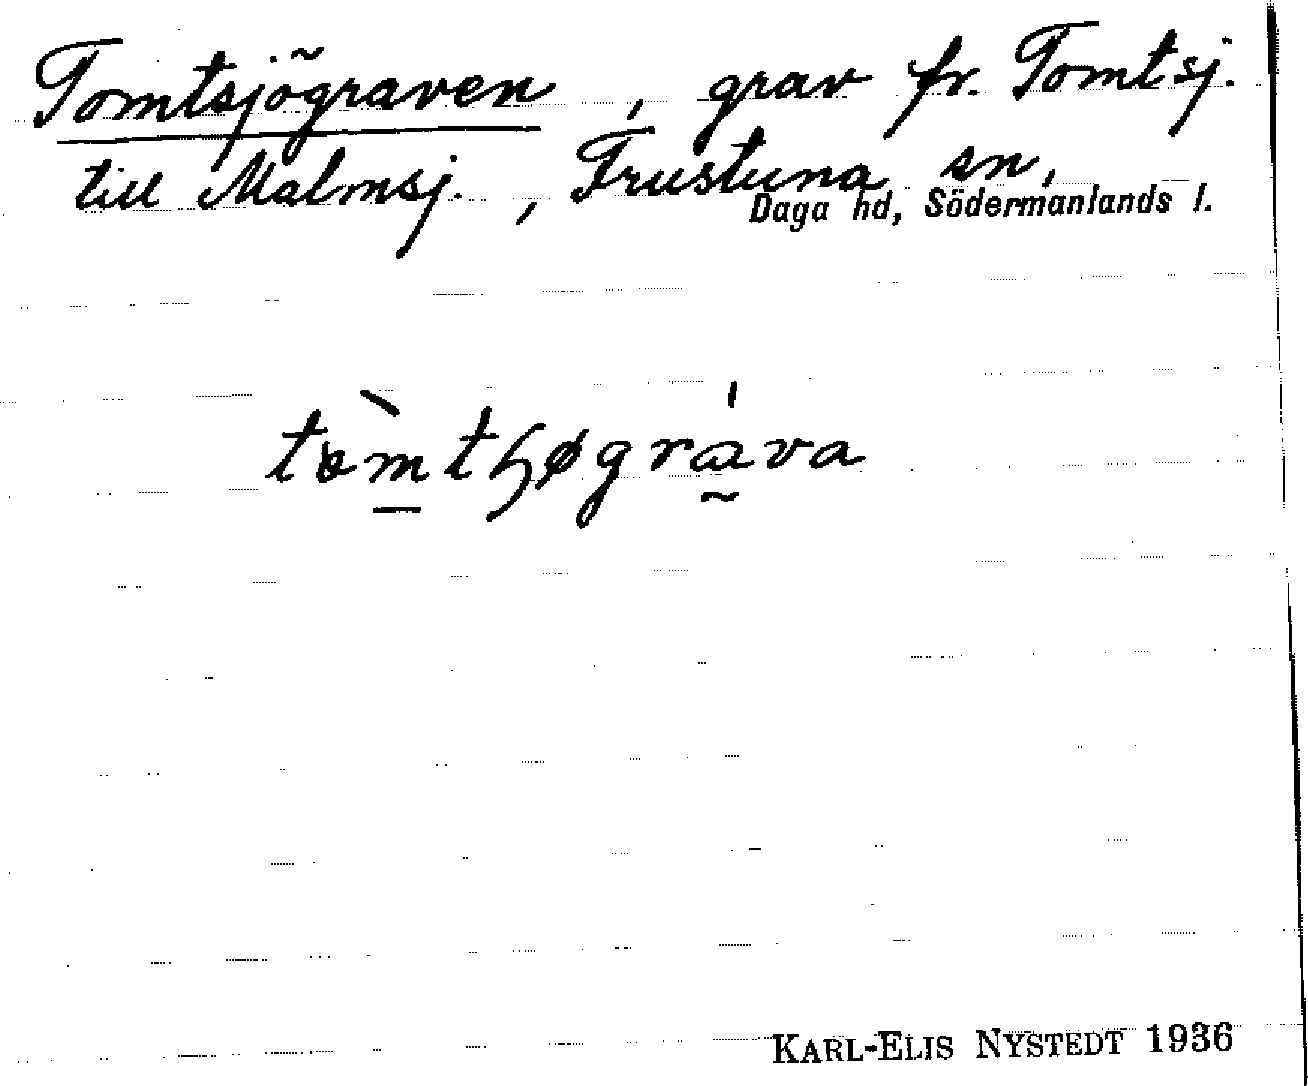 Tomtsjögraven, grav fr. Tomtsj.
till Malmsj., Frustuna sn,
Daga hd, Södermanlands l.
KARL-ELIS NYSTEDT 1936